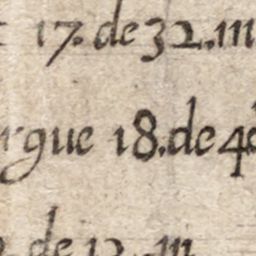 17. de 32. m
rgue 18. de 4
de 12. m